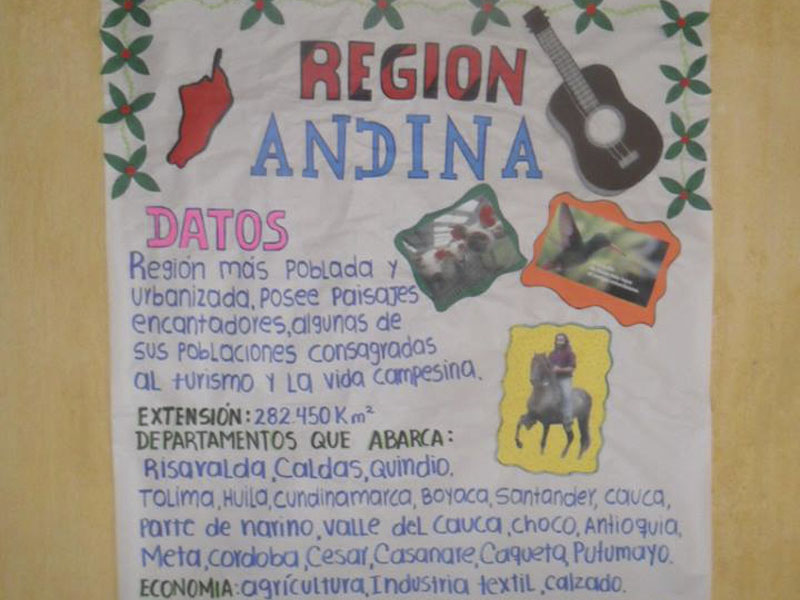 REGION
ANDINA
DATOS
Región más poblada y
urbanizada, posee paisajes
encantadores, algunas de
sus poblaciones consagradas
al turismo y la vida campesina.
EXTENSIÓN: 282.450 Km²
DEPARTAMENTOS QUE ABARCA:
Risaralda, Caldas, Quindio.
Tolima, Huila, Cundinamarca, Boyaca, Santander, Cauca,
Parte de narino, valle del Cauca, choco, Antioquia,
Meta, cordoba, Cesar, Casanare, Caqueta, Putumayo.
ECONOMIA: agrícultura, Industria textil, calzado.